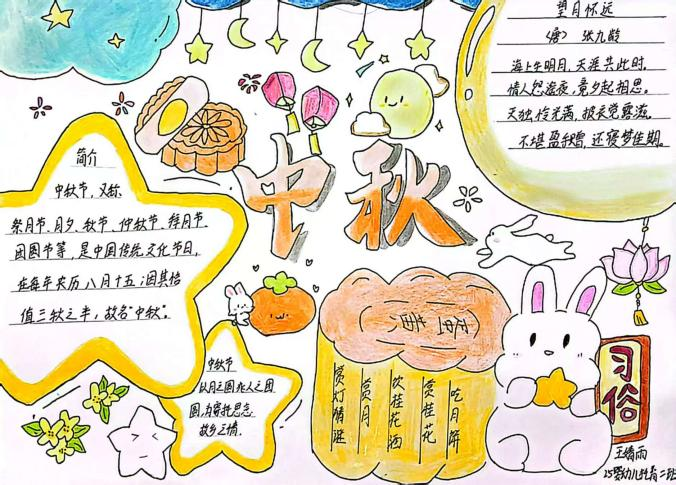 望月怀远
〈唐〉 张九龄
海上生明月，天涯共此时。
情人怨遥夜，竟夕起相思。
怜光满，披衣觉露滋。
不堪盈手，还寝梦佳期。
中秋
简介
中秋节，又称
祭月节、月夕、秋节、仲秋节、拜月节、
团圆节等，是中国传统文化节日，
在每年农历八月十五；因其恰
值三秋之半，故名“中秋”。
中秋节
以月之圆兆人之团
圆，为寄托思念
故乡之情。
吃月饼
赏桂花
饮桂花酒
赏月
赏灯猜谜
习俗
王雨
幼儿托育二班